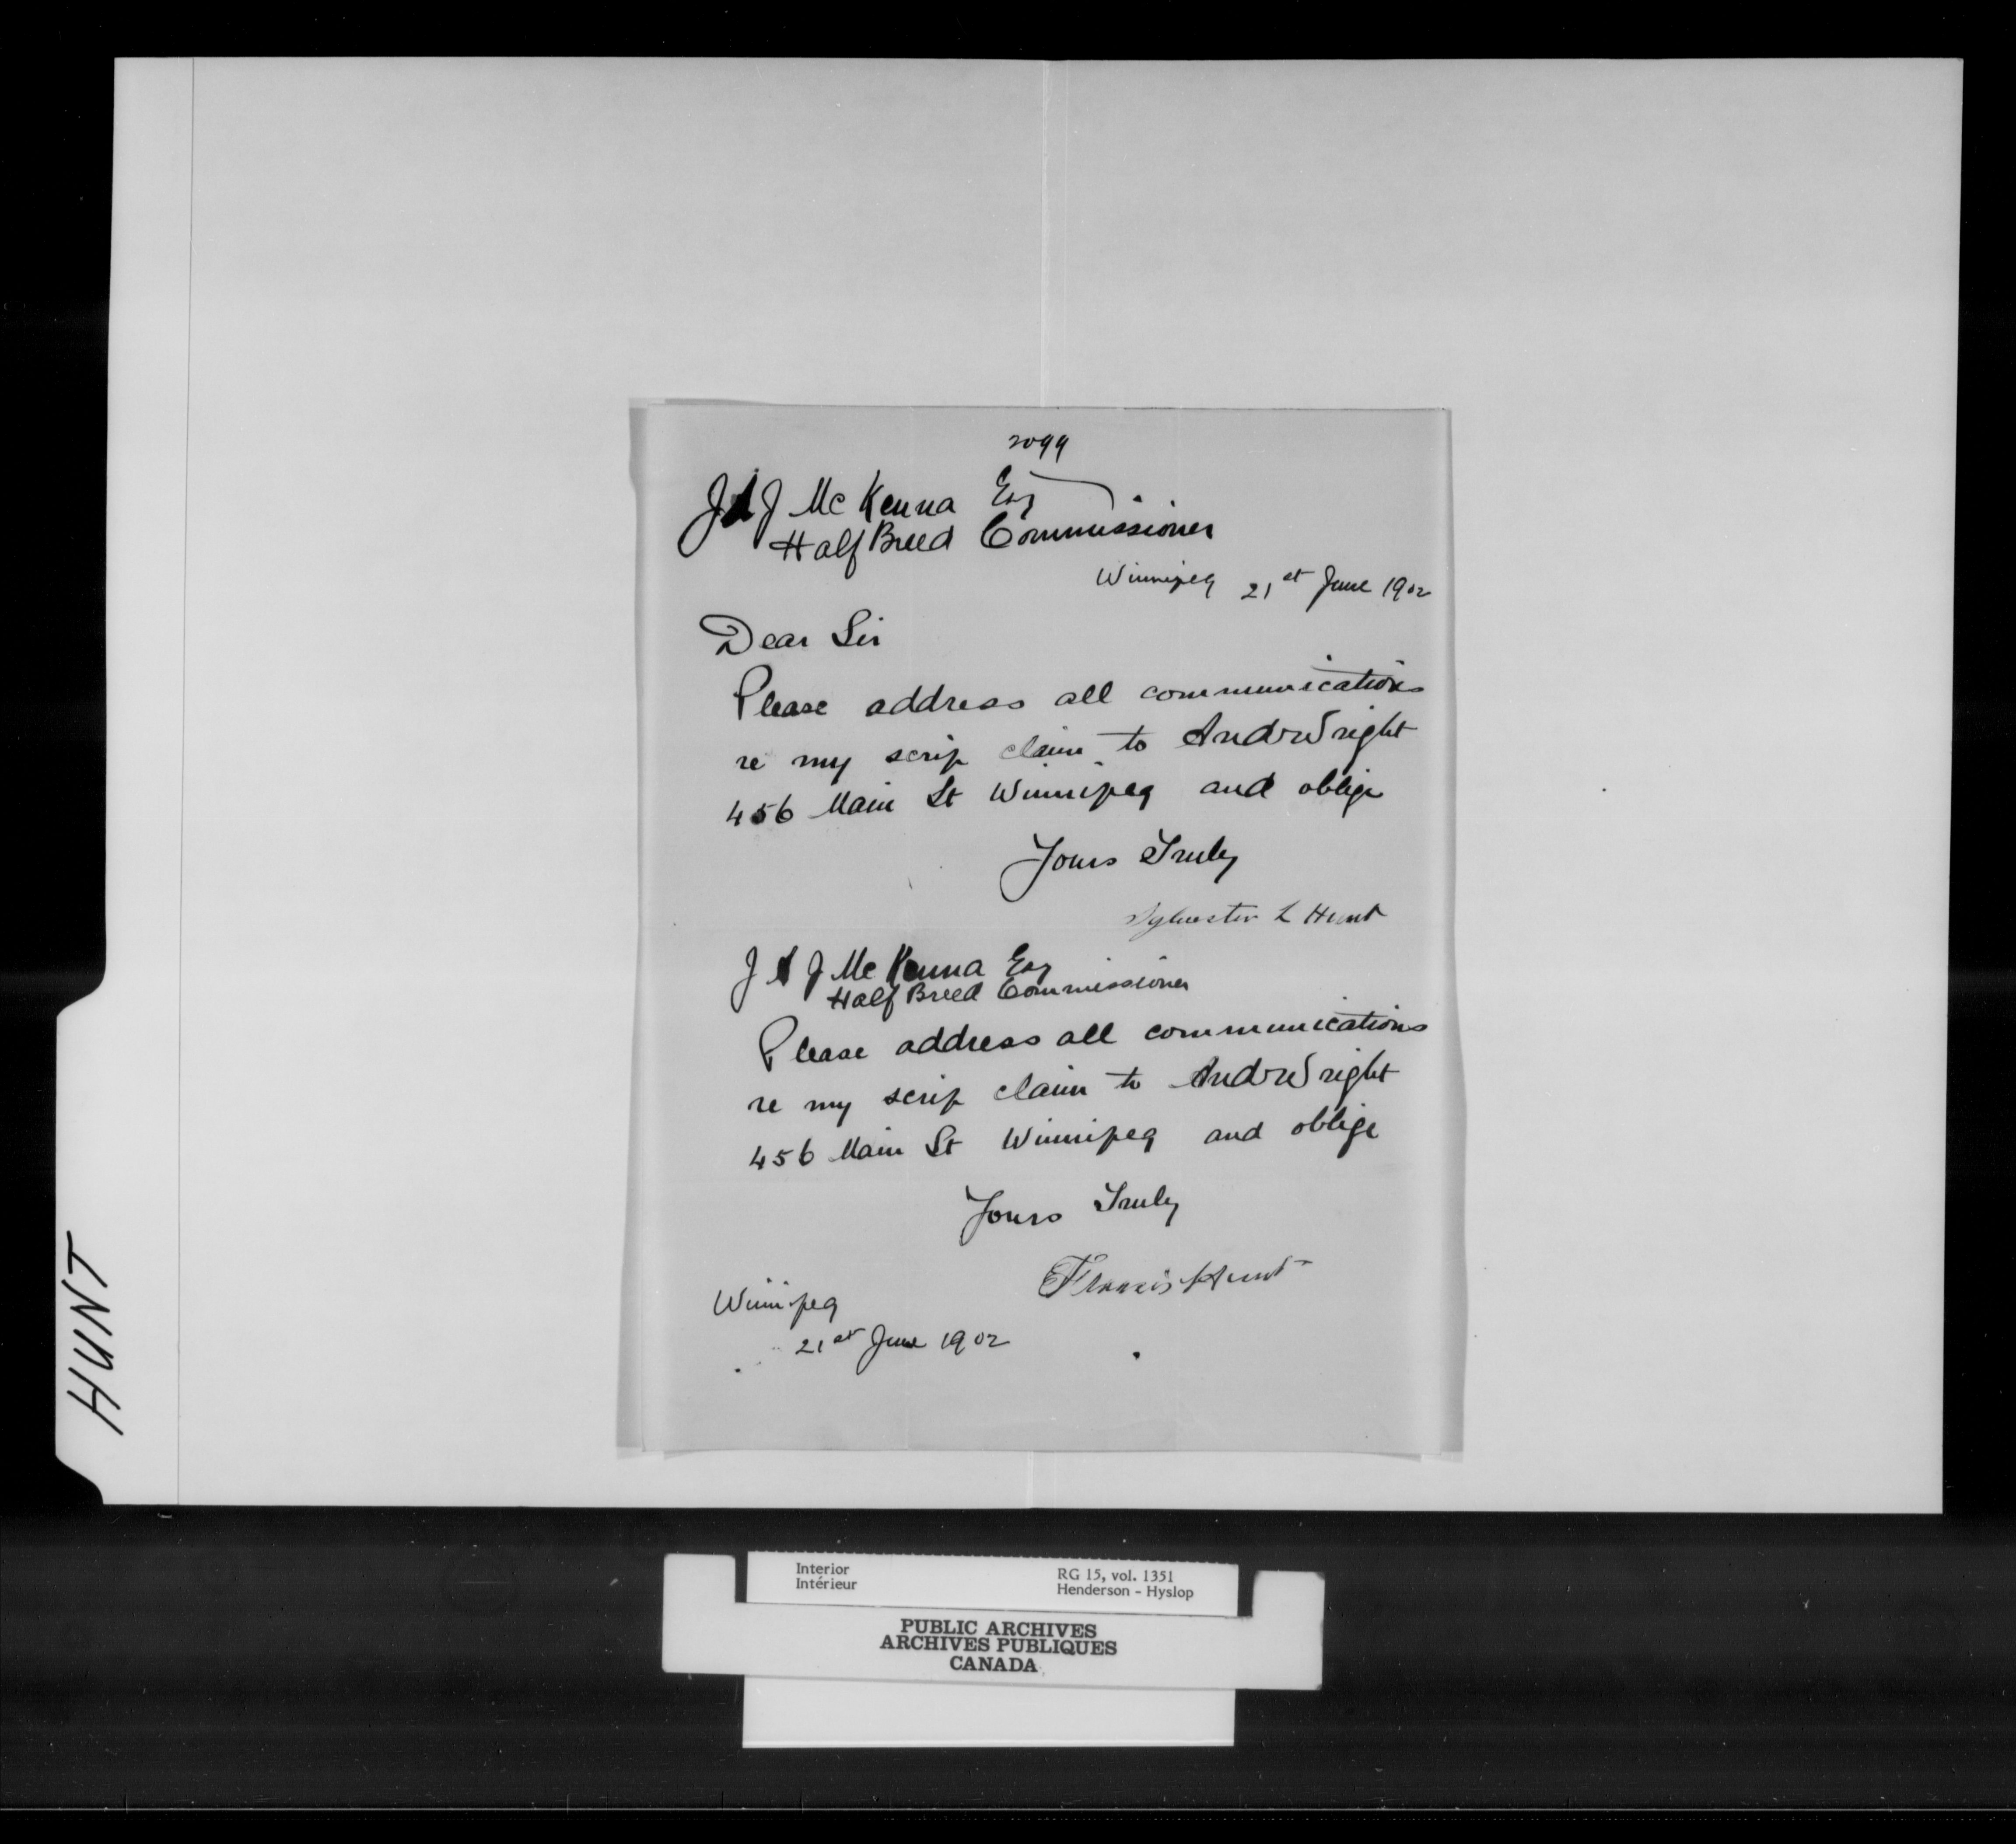 2099
J A J McKenna Esq
Half Breed Commissioner
Winnipeg 21st June 1902
Dear Sir
Please address all communications
re my scrip claim to And Wright
456 Main St Winnipeg and oblige
Yours Truly
Sylvester L Hunt
J A J McKenna Esq
Half Breed Commissioner
Please address all communications
re my scrip claim to And Wright
456 Main St Winnipeg and oblige
Yours Truly
Francis Hunt
Winnipeg
21st June 1902
HUNT
Interior
Intérieur
RG 15, vol. 1351
Henderson - Hyslop
PUBLIC ARCHIVES
ARCHIVES PUBLIQUES
CANADA